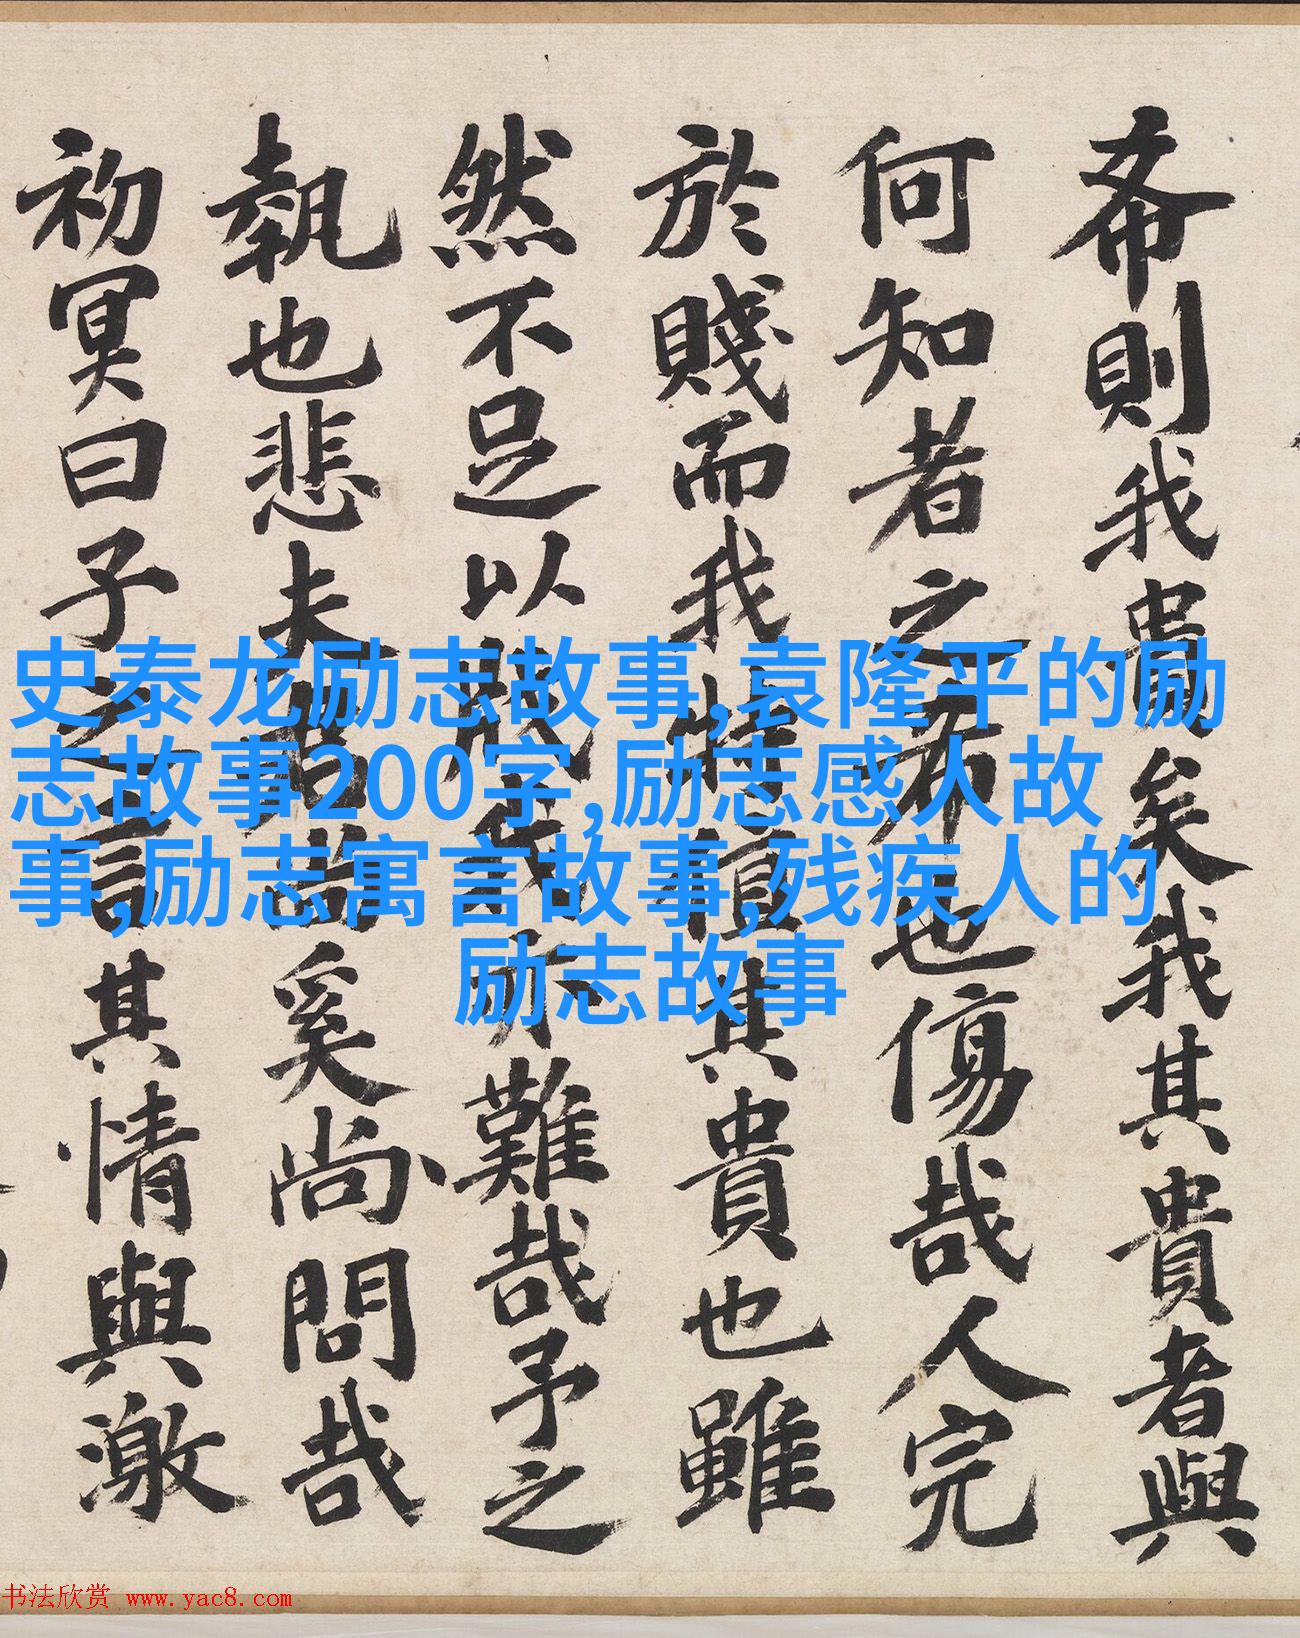 希則我貴矣我其貴者與
何知者之希也傷哉人完
於賤而我特其貴也雖
然不足以所難哉予之
執也悲夫奚尚問哉
初冥曰子之言其情與激
史泰龙励志故事,袁隆平的励
志故事200字,励志感人故
事,励志寓言故事,残疾人的
励志故事
书法欣赏 www.yac8.com